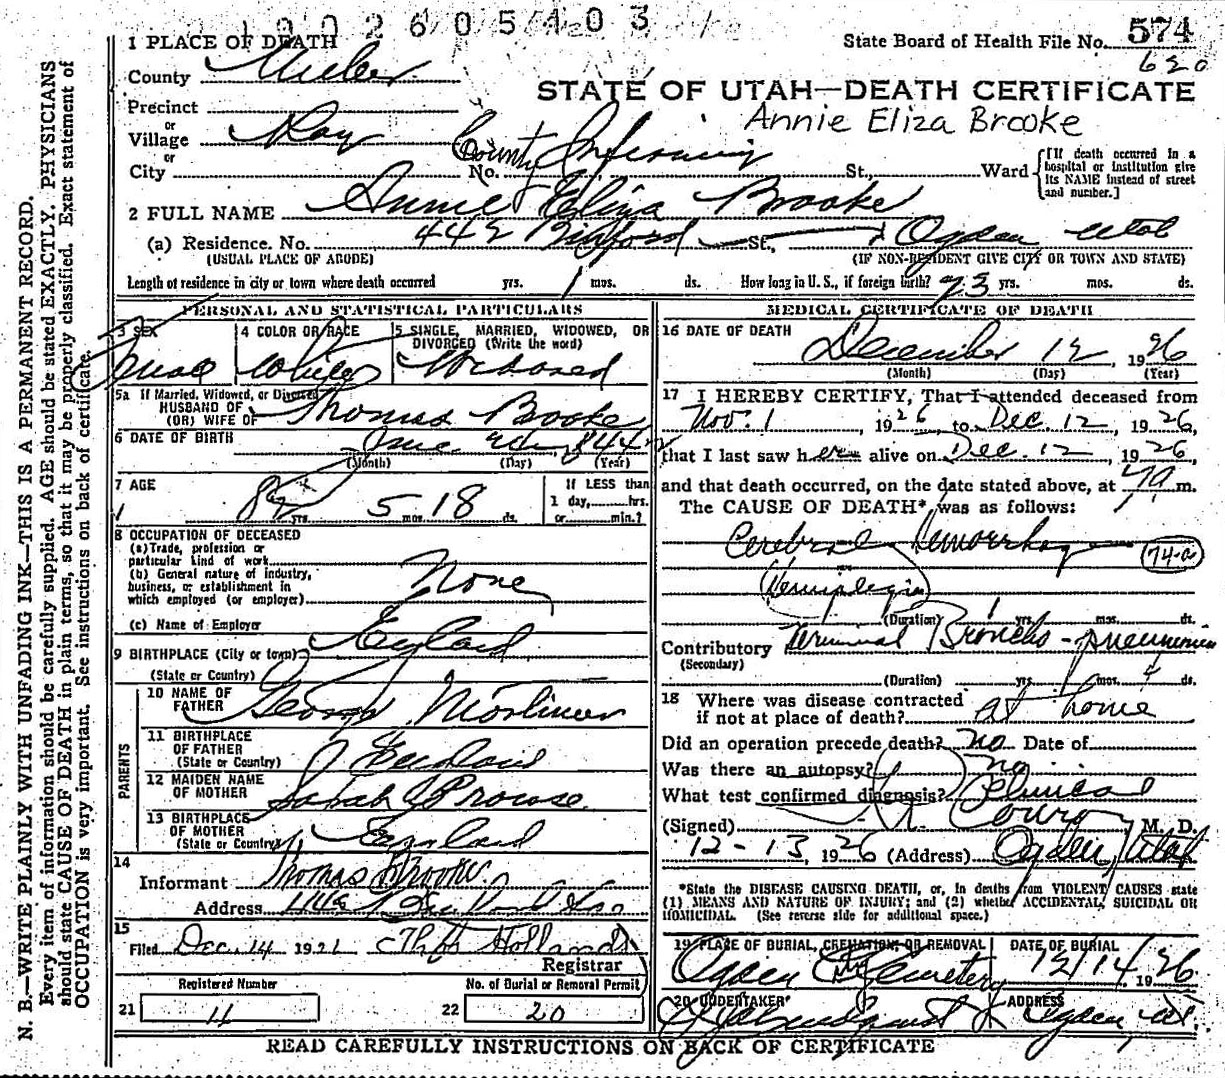 1902605403
State Board of Health File No. 574
620
1 PLACE OF DEATH
County Weber
STATE OF UTAH—DEATH CERTIFICATE
Annie Eliza Brooke
Precinct
or
Village Roy
or
City No. County Infirmary St., Ward
[If death occurred in a hospital or institution give its NAME instead of street and number.]
2 FULL NAME Annie Eliza Brooke
(a) Residence. No. 442 Binford St., Ogden Utah
(USUAL PLACE OF ABODE) (IF NON-RESIDENT GIVE CITY OR TOWN AND STATE)
Length of residence in city or town where death occurred yrs. 1 mos. ds. How long in U. S., if foreign birth? yrs. mos. ds.
PERSONAL AND STATISTICAL PARTICULARS
3 SEX 4 COLOR OR RACE 5 SINGLE, MARRIED, WIDOWED, OR
DIVORCED (Write the word)
White Widowed
5a If Married, Widowed, or Divorced
HUSBAND OF
(OR) WIFE OF Thomas Brooke
6 DATE OF BIRTH June 1844
(Month) (Day) (Year)
7 AGE 82 yrs. 5 mos. 18 ds.
If LESS than
1 day, hrs.
or min.?
8 OCCUPATION OF DECEASED
(a) Trade, profession or
particular kind of work
(b) General nature of industry,
business, or establishment in
which employed (or employer) None
(c) Name of Employer
9 BIRTHPLACE (City or town) England
(State or Country)
PARENTS
10 NAME OF
FATHER George Mortimer
11 BIRTHPLACE
OF FATHER
(State or Country) England
12 MAIDEN NAME
OF MOTHER Sarah Prowse
13 BIRTHPLACE
OF MOTHER
(State or Country) England
14
Informant Thomas Brooke
Address
15
Filed Dec. 14 192 Holland
Registrar
Registered Number No. of Burial or Removal Permit
21 11 22 20
MEDICAL CERTIFICATE OF DEATH
16 DATE OF DEATH
December 12, 1926
(Month) (Day) (Year)
17 I HEREBY CERTIFY, That I attended deceased from
Nov. 1, 1926, to Dec. 12, 1926,
that I last saw her alive on Dec. 12, 1926,
and that death occurred, on the date stated above, at m.
The CAUSE OF DEATH* was as follows:
Cerebral Hemorrhage 74-a
Hemiplegia
(Duration) 1 yrs. mos. ds.
Contributory Terminal Broncho-pneumonia
(Secondary)
(Duration) yrs. mos. 4 ds.
18 Where was disease contracted
if not at place of death? at home
Did an operation precede death? no Date of
Was there an autopsy? no
What test confirmed diagnosis? Clinical
(Signed) Conroy M. D.
12-13, 1926 (Address) Ogden, Utah
*State the DISEASE CAUSING DEATH, or, in deaths from VIOLENT CAUSES state
(1) MEANS AND NATURE OF INJURY; and (2) whether ACCIDENTAL, SUICIDAL OR
HOMICIDAL. (See reverse side for additional space.)
19 PLACE OF BURIAL, CREMATION, OR REMOVAL DATE OF BURIAL
Ogden City Cemetery 12/14 1926
20 UNDERTAKER ADDRESS
Ogden, Ut.
READ CAREFULLY INSTRUCTIONS ON BACK OF CERTIFICATE
N. B.—WRITE PLAINLY WITH UNFADING INK—THIS IS A PERMANENT RECORD.
Every item of information should be carefully supplied. AGE should be stated EXACTLY. PHYSICIANS
should state CAUSE OF DEATH in plain terms, so that it may be properly classified. Exact statement of
OCCUPATION is very important. See instructions on back of certificate.